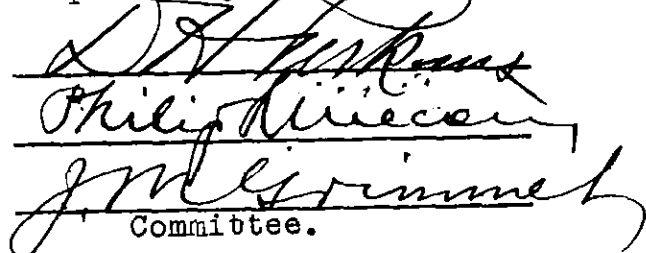 D H Perkins
Philip
J. M. Grimmet
Committee.